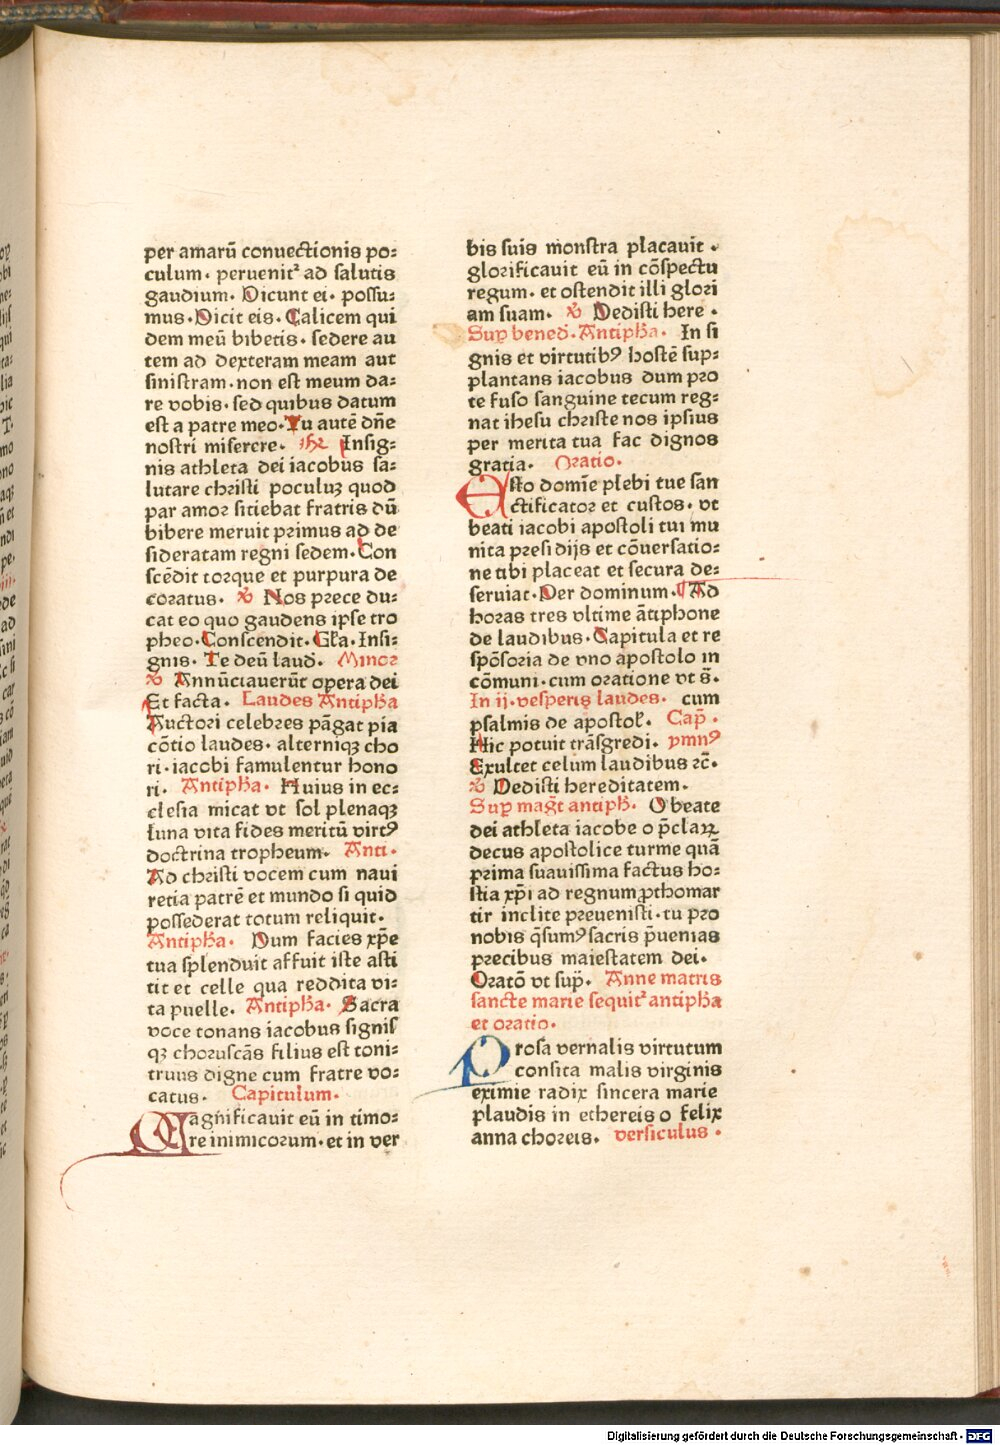 per amarū conuectionis po⸗
culum· peruenitᷣ ad salutis
gaudium· Dicunt ei· possu⸗
mus· Dicit eis· Calicem qui
dem meū bibetis· sedere au
tem ad dexteram meam aut
sinistram· non est meum da⸗
re vobis· sed quibus datum
est a patre meo· Tu autē dn̄e
nostri miserere· Insig⸗
nis athleta dei iacobus sa⸗
lutare christi poculuꝫ quod
par amor sitiebat fratris dū
bibere meruit primus ad de
sideratam regni sedem· Con
scēdit torque et purpura de
coratus· ꝟ Nos prece du⸗
cat eo quo gaudens ipse tro
pheo· Conscendit· Gl̄a· Insi⸗
gnis· Te deū laud̄· Minor
ꝟ Annūciauerūt opera dei
Et facta· Laudes Antipħa
Auctori celebres pāgat pia
cōtio laudes· alterniqꝫ cho
ri· iacobi famulentur hono
ri· Antipħa· Huius in ec⸗
clesia micat vt sol plenaqꝫ
luna vita fides meritū virtꝰ
doctrina tropheum· Anti·
Ad christi vocem cum naui
retia patrē et mundo si quid
possederat totum reliquit·
Antipħa· Dum facies xp̄e
tua splenduit affuit iste asti
tit et celle qua reddita vi⸗
ta puelle· Antipħa· Sacra
voce tonans iacobus signis
qꝫ choruscās filius est toni⸗
truus digne cum fratre vo⸗
catus· Capitulum·
Magnificauit eū in timo⸗
re inimicorum· et in ver
bis suis monstra placauit·
glorificauit eū in cōspectu
regum· et ostendit illi glori
am suam· ꝟ Dedisti here·
Suꝑ bened̄· Antipħa· In si
gnis et virtutibꝰ hostē sup⸗
plantans iacobus dum pro
te fuso sanguine tecum reg⸗
nat ihesu christe nos ipsius
per merita tua fac dignos
gratia· Oratio·
Esto domīe plebi tue san
ctificator et custos· vt
beati iacobi apostoli tui mu
nita presidijs et cōuersatio⸗
ne tibi placeat et secura de⸗
seruiat· Per dominum· Ad
horas tres vltime ātiphone
de laudibus· Capitula et re
spōsoria de vno apostolo in
cōmuni· cum oratione vt s̄·
In ij· vesperis laudes· cum
psalmis de apostoł· Cap̄·
Hic potuit trāsgredi· ymnꝰ
Exultet celum laudibus ꝛc̄·
ꝟ Dedisti hereditatem·
Suꝑ mag̅t antipħ· O beate
dei athleta iacobe o p̄claꝝ
decus apostolice turme quā
prima suauissima factus ho⸗
stia xp̄i ad regnum ꝓthomar
tir inclite preuenisti· tu pro
nobis q̄sumꝰ sacris p̄uenias
precibus maiestatem dei·
Oratō vt sup̄· Anne matris
sancte marie sequitᷣ antipħa
et oratio·
Prosa vernalis virtutum
consita malis virginis
eximie radix sincera marie
plaudis in ethereis o felix
anna choreis· versiculus·
Digitalisierung gefördert durch die Deutsche Forschungsgemeinschaft - DFG